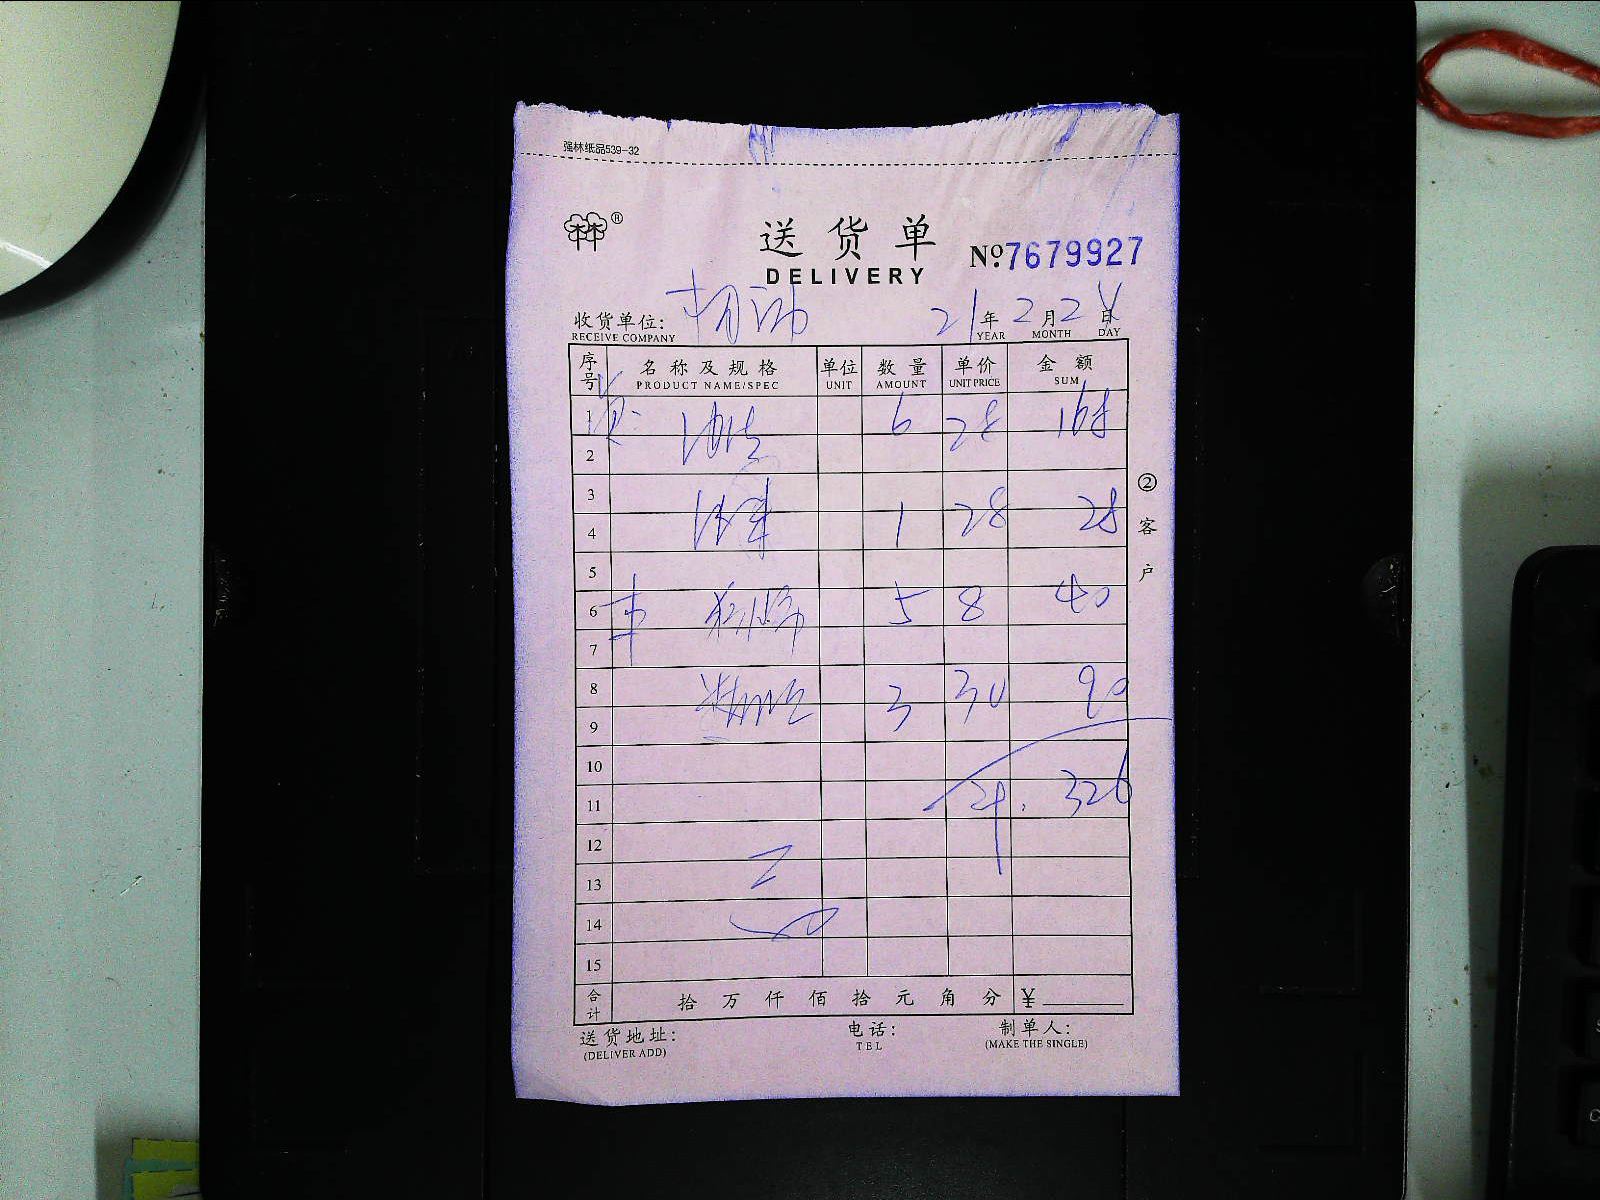 强林纸品539-32
林®
送货单
DELIVERY
№7679927
收货单位: 21年2月2日
RECEIVE COMPANY YEAR MONTH DAY
序号 名称及规格 单位 数量 单价 金额
PRODUCT NAME/SPEC UNIT AMOUNT UNIT PRICE SUM
1 6 28 168
2
3
4 1 28 28
5
6 5 8 40
7
8 3 30 90
9
10
11 326
12
13
14
15
合计 拾 万 仟 佰 拾 元 角 分 ¥
送货地址: 电话: 制单人:
(DELIVER ADD) TEL (MAKE THE SINGLE)
②客户